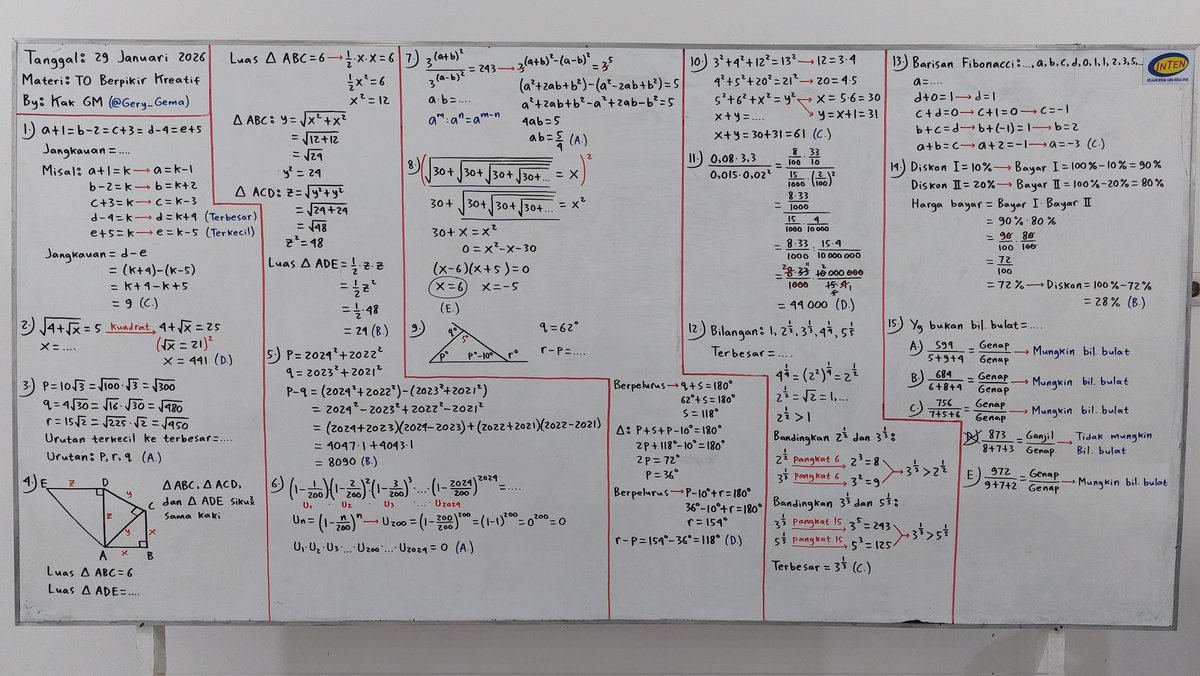 Tanggal: 29 Januari 2026
Materi: TO Berpikir Kreatif
By: Kak GM (@Gery_Gema)
1.) a+1=b-2=c+3=d-4=e+5
Jangkauan=....
Misal: a+1=k→a=k-1
b-2=k→b=k+2
c+3=k→c=k-3
d-4=k→d=k+4 (Terbesar)
e+5=k→e=k-5 (Terkecil)
Jangkauan=d-e
=(k+4)-(k-5)
=k+4-k+5
=9 (C.)
2.) √(4+√x)=5 kuadrat→ 4+√x=25
x=.... (√x=21)²
x=441 (D.)
3.) P=10√3=√100·√3=√300
q=4√30=√16·√30=√480
r=15√2=√225·√2=√450
Urutan terkecil ke terbesar=....
Urutan: P, r, q (A.)
4.) E z D y C z y x A x B
Δ ABC, Δ ACD,
dan Δ ADE siku²
sama kaki
Luas Δ ABC=6
Luas Δ ADE=....
Luas Δ ABC=6→1/2·x·x=6
1/2x²=6
x²=12
Δ ABC: y=√(x²+x²)
=√(12+12)
=√24
y²=24
Δ ACD: z=√(y²+y²)
=√(24+24)
=√48
z²=48
Luas Δ ADE=1/2·z·z
=1/2z²
=1/2·48
=24 (B.)
5.) P=2024²+2022²
q=2023²+2021²
P-q=(2024²+2022²)-(2023²+2021²)
=2024²-2023²+2022²-2021²
=(2024+2023)(2024-2023)+(2022+2021)(2022-2021)
=4047·1+4043·1
=8090 (B.)
6.) (1-1/200)(1-2/200)²(1-3/200)³·...·(1-2024/200)²⁰²⁴=....
U₁ U₂ U₃ U₂₀₂₄
Un=(1-n/200)ⁿ→U₂₀₀=(1-200/200)²⁰⁰=(1-1)²⁰⁰=0²⁰⁰=0
U₁·U₂·U₃·...·U₂₀₀·...·U₂₀₂₄=0 (A.)
7.) 3^(a+b)²/3^(a-b)²=243→3^((a+b)²-(a-b)²)=3⁵
(a²+2ab+b²)-(a²-2ab+b²)=5
a·b=.... a²+2ab+b²-a²+2ab-b²=5
aᵐ:aⁿ=aᵐ⁻ⁿ 4ab=5
ab=5/4 (A.)
8.) (√(30+√(30+√(30+√(30+...))))=x)²
30+√(30+√(30+√(30+...)))=x²
30+x=x²
0=x²-x-30
(x-6)(x+5)=0
x=6 x=-5
(E.)
9.) q° s° P° P°-10° r°
q=62°
r-P=....
Berpelurus→q+s=180°
62°+s=180°
s=118°
Δ: P+s+P-10°=180°
2P+118°-10°=180°
2P=72°
P=36°
Berpelurus→P-10°+r=180°
36°-10°+r=180°
r=154°
r-P=154°-36°=118° (D.)
10.) 3²+4²+12²=13²→12=3·4
4²+5²+20²=21²→20=4·5
5²+6²+x²=y²→x=5·6=30
x+y=.... y=x+1=31
x+y=30+31=61 (C.)
11.) 0,08·3,3/0,015·0,02²=8/100·33/10/15/1000·(2/100)²
=8·33/1000/15/1000·4/10000
=8·33/1000:15·4/10 000 000
=8·33/1000·10 000 000/15·4
=44 000 (D.)
12.) Bilangan: 1, 2^1/2, 3^1/3, 4^1/4, 5^1/5
Terbesar=....
4^1/4=(2²)^1/4=2^1/2
2^1/2=√2=1,...
2^1/2>1
Bandingkan 2^1/2 dan 3^1/3:
2^1/2 pangkat 6→2³=8
3^1/3 pangkat 6→3²=9 3^1/3>2^1/2
Bandingkan 3^1/3 dan 5^1/5:
3^1/3 pangkat 15→3⁵=243
5^1/5 pangkat 15→5³=125 3^1/3>5^1/5
Terbesar=3^1/3 (C.)
13.) Barisan Fibonacci:..., a, b, c, d, 0, 1, 1, 2, 3, 5,...
a=....
d+0=1→d=1
c+d=0→c+1=0→c=-1
b+c=d→b+(-1)=1→b=2
a+b=c→a+2=-1→a=-3 (C.)
14.) Diskon I=10%→Bayar I=100%-10%=90%
Diskon II=20%→Bayar II=100%-20%=80%
Harga bayar=Bayar I·Bayar II
=90%·80%
=90/100·80/100
=72/100
=72%→Diskon=100%-72%
=28% (B.)
15.) Yg bukan bil. bulat=....
A.) 594/5+9+4=Genap/Genap→Mungkin bil. bulat
B.) 684/6+8+4=Genap/Genap→Mungkin bil. bulat
C.) 756/7+5+6=Genap/Genap→Mungkin bil. bulat
D.) 873/8+7+3=Ganjil/Genap→Tidak mungkin
Bil. bulat
E.) 972/9+7+2=Genap/Genap→Mungkin bil. bulat
INTEN